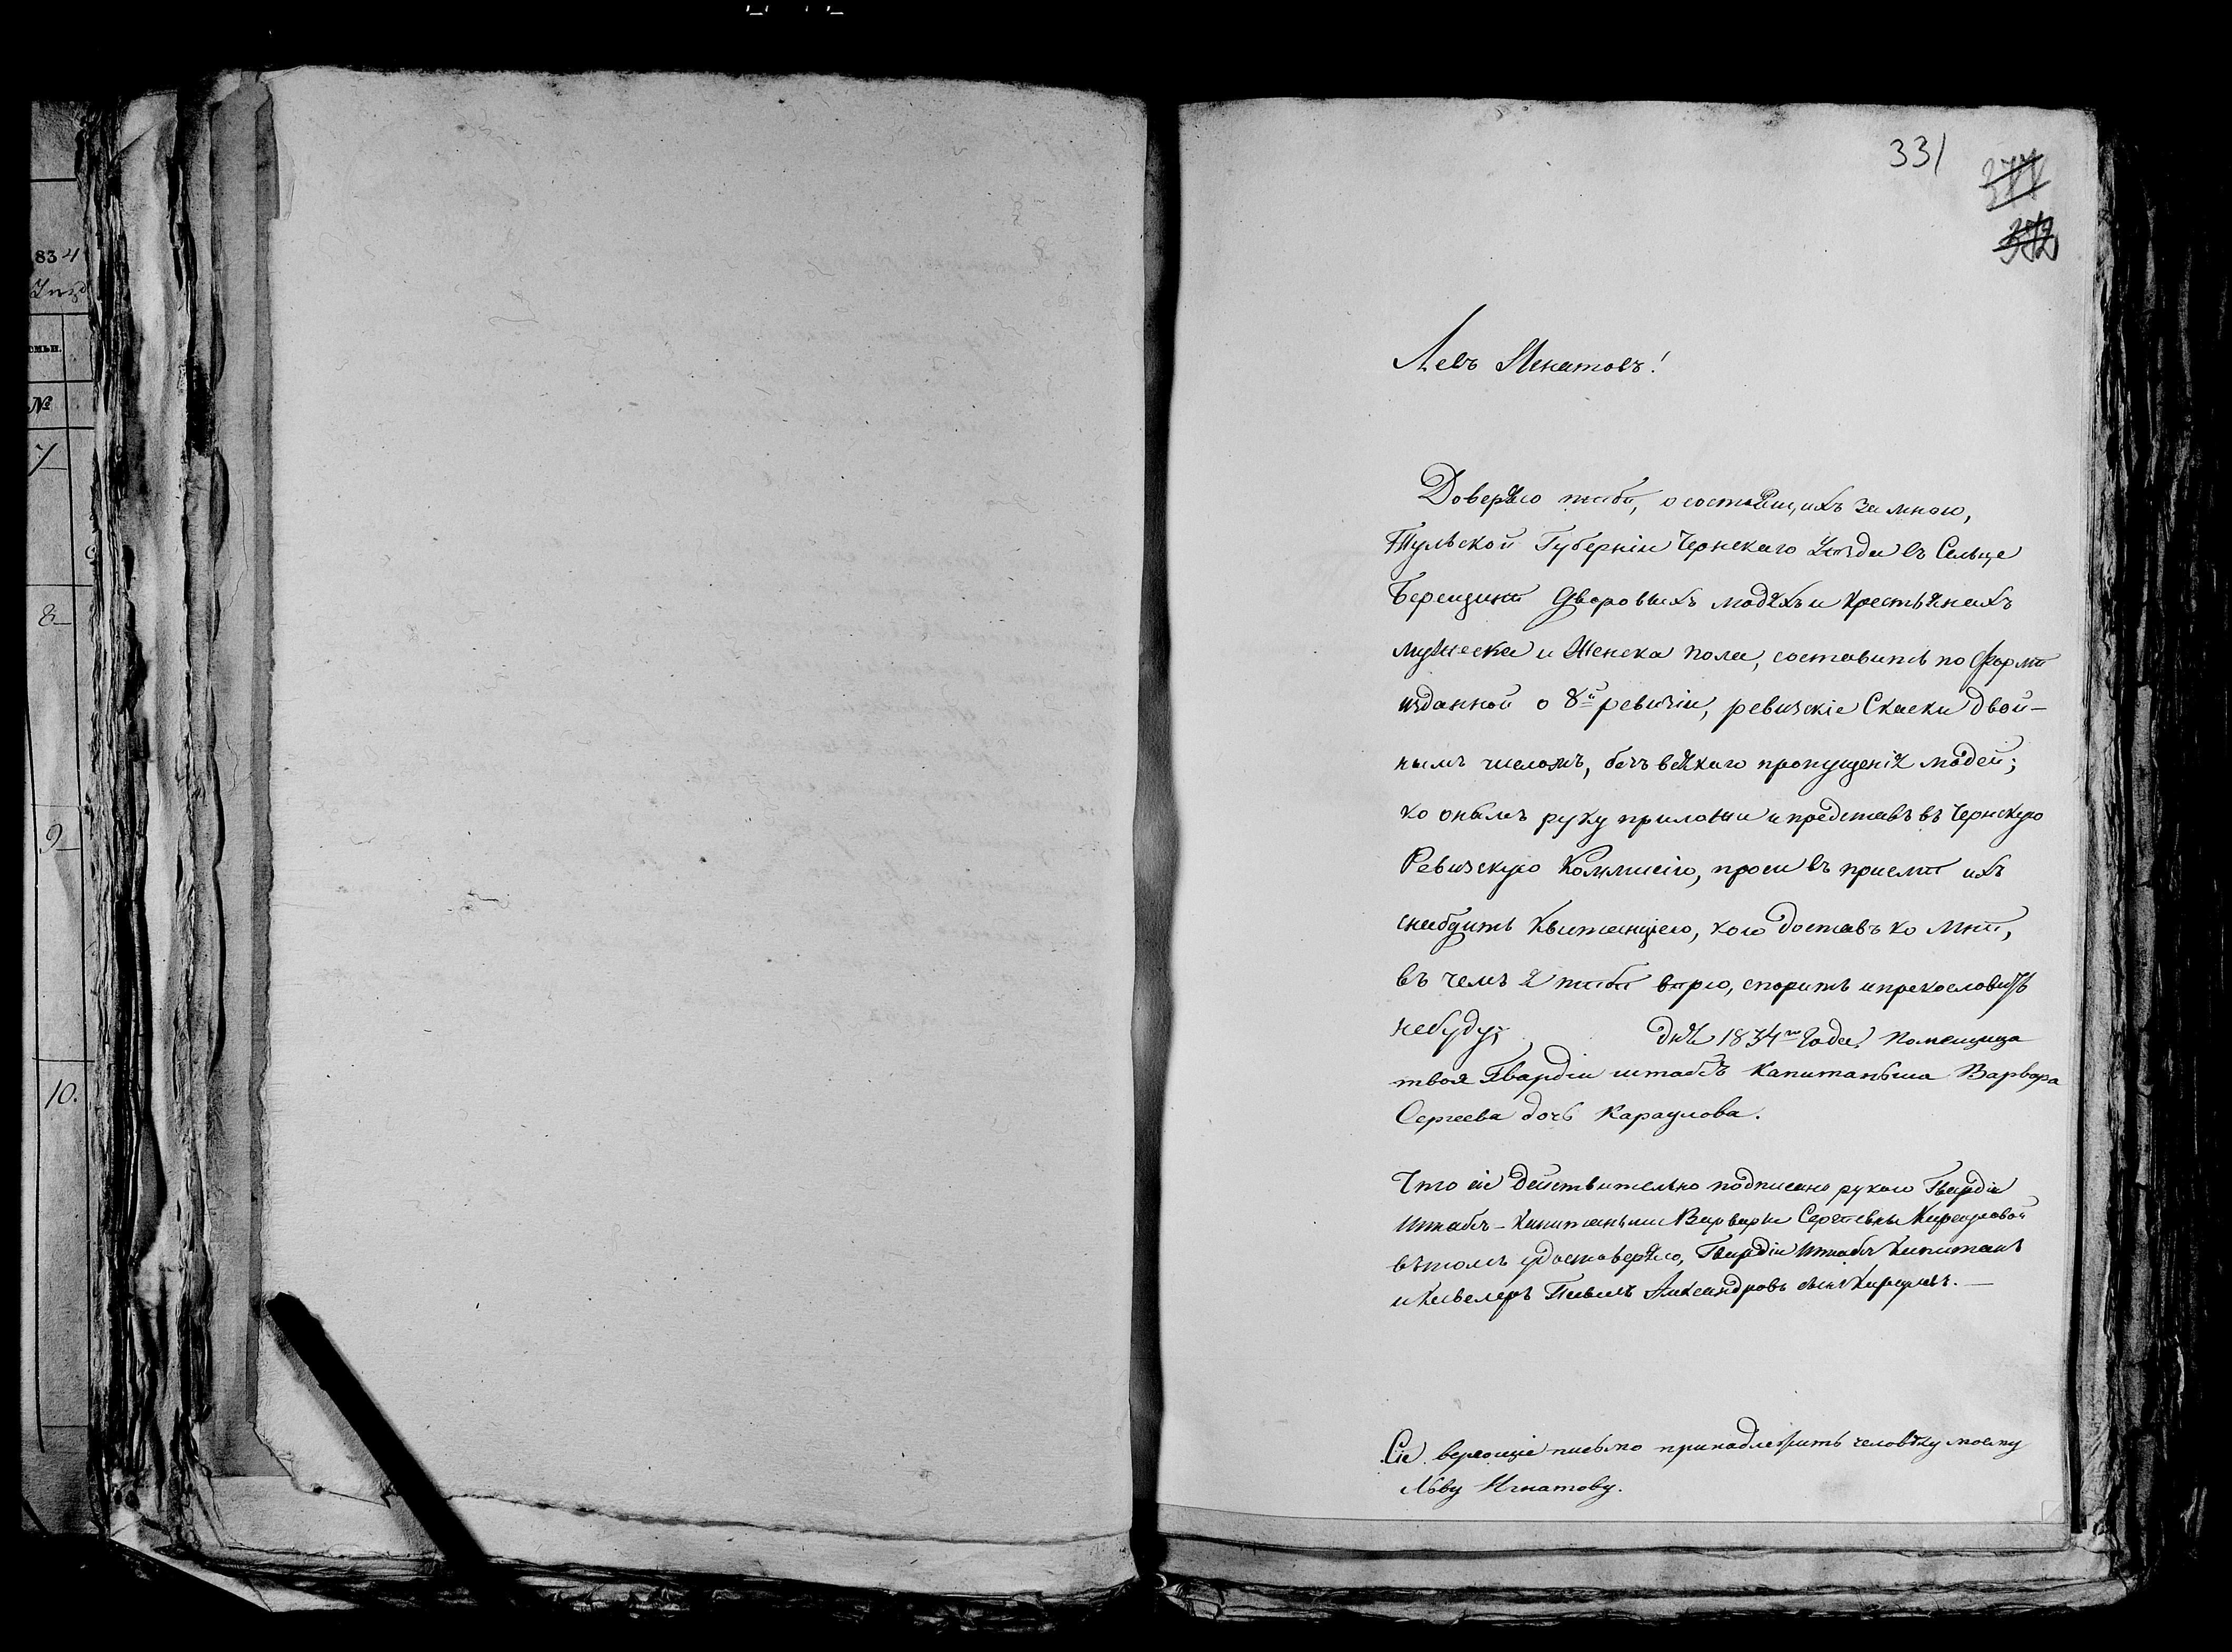 834
№
7
8
9
10.
331
377
372
Левъ Игнатовъ!
Доверяю тебѣ, о состоящихъ за мною,
Тульской Губерніи Чернскаго Уѣзда въ Сельце
дворовыхъ людяхъ и крестьянахъ
мужеска и женска пола, составить по формѣ
изданной о 8й ревизіи, ревизскіе Скаски двой-
нымъ числомъ, безъ всякаго пропущенія людей;
ко онымъ руку приложи и представь въ Чернскую
Ревизскую Коммисію, проси въ приемѣ ихъ
снабдить квитанціею, кою доставь ко мнѣ,
въ чемъ я тебѣ вѣрю, спорить и прекословить
небуду; дня 1834го года. Помещица
твоя Гвардіи штабсъ Капитанъша Варвара
Сергеева дочь Караулова.
Что сіе действительно подписано рукою Гвардіи
Штабсъ-Капитанши Варвары Сергѣевны Карауловой
вътомъ удостоверяю, Гвардіи Штабсъ Капитанъ
и Кавалеръ Павелъ Александровъ сынъ Карауловъ. —
Сіе верющіе письмо принадлежитъ человѣку моему
Льву Игнатову.